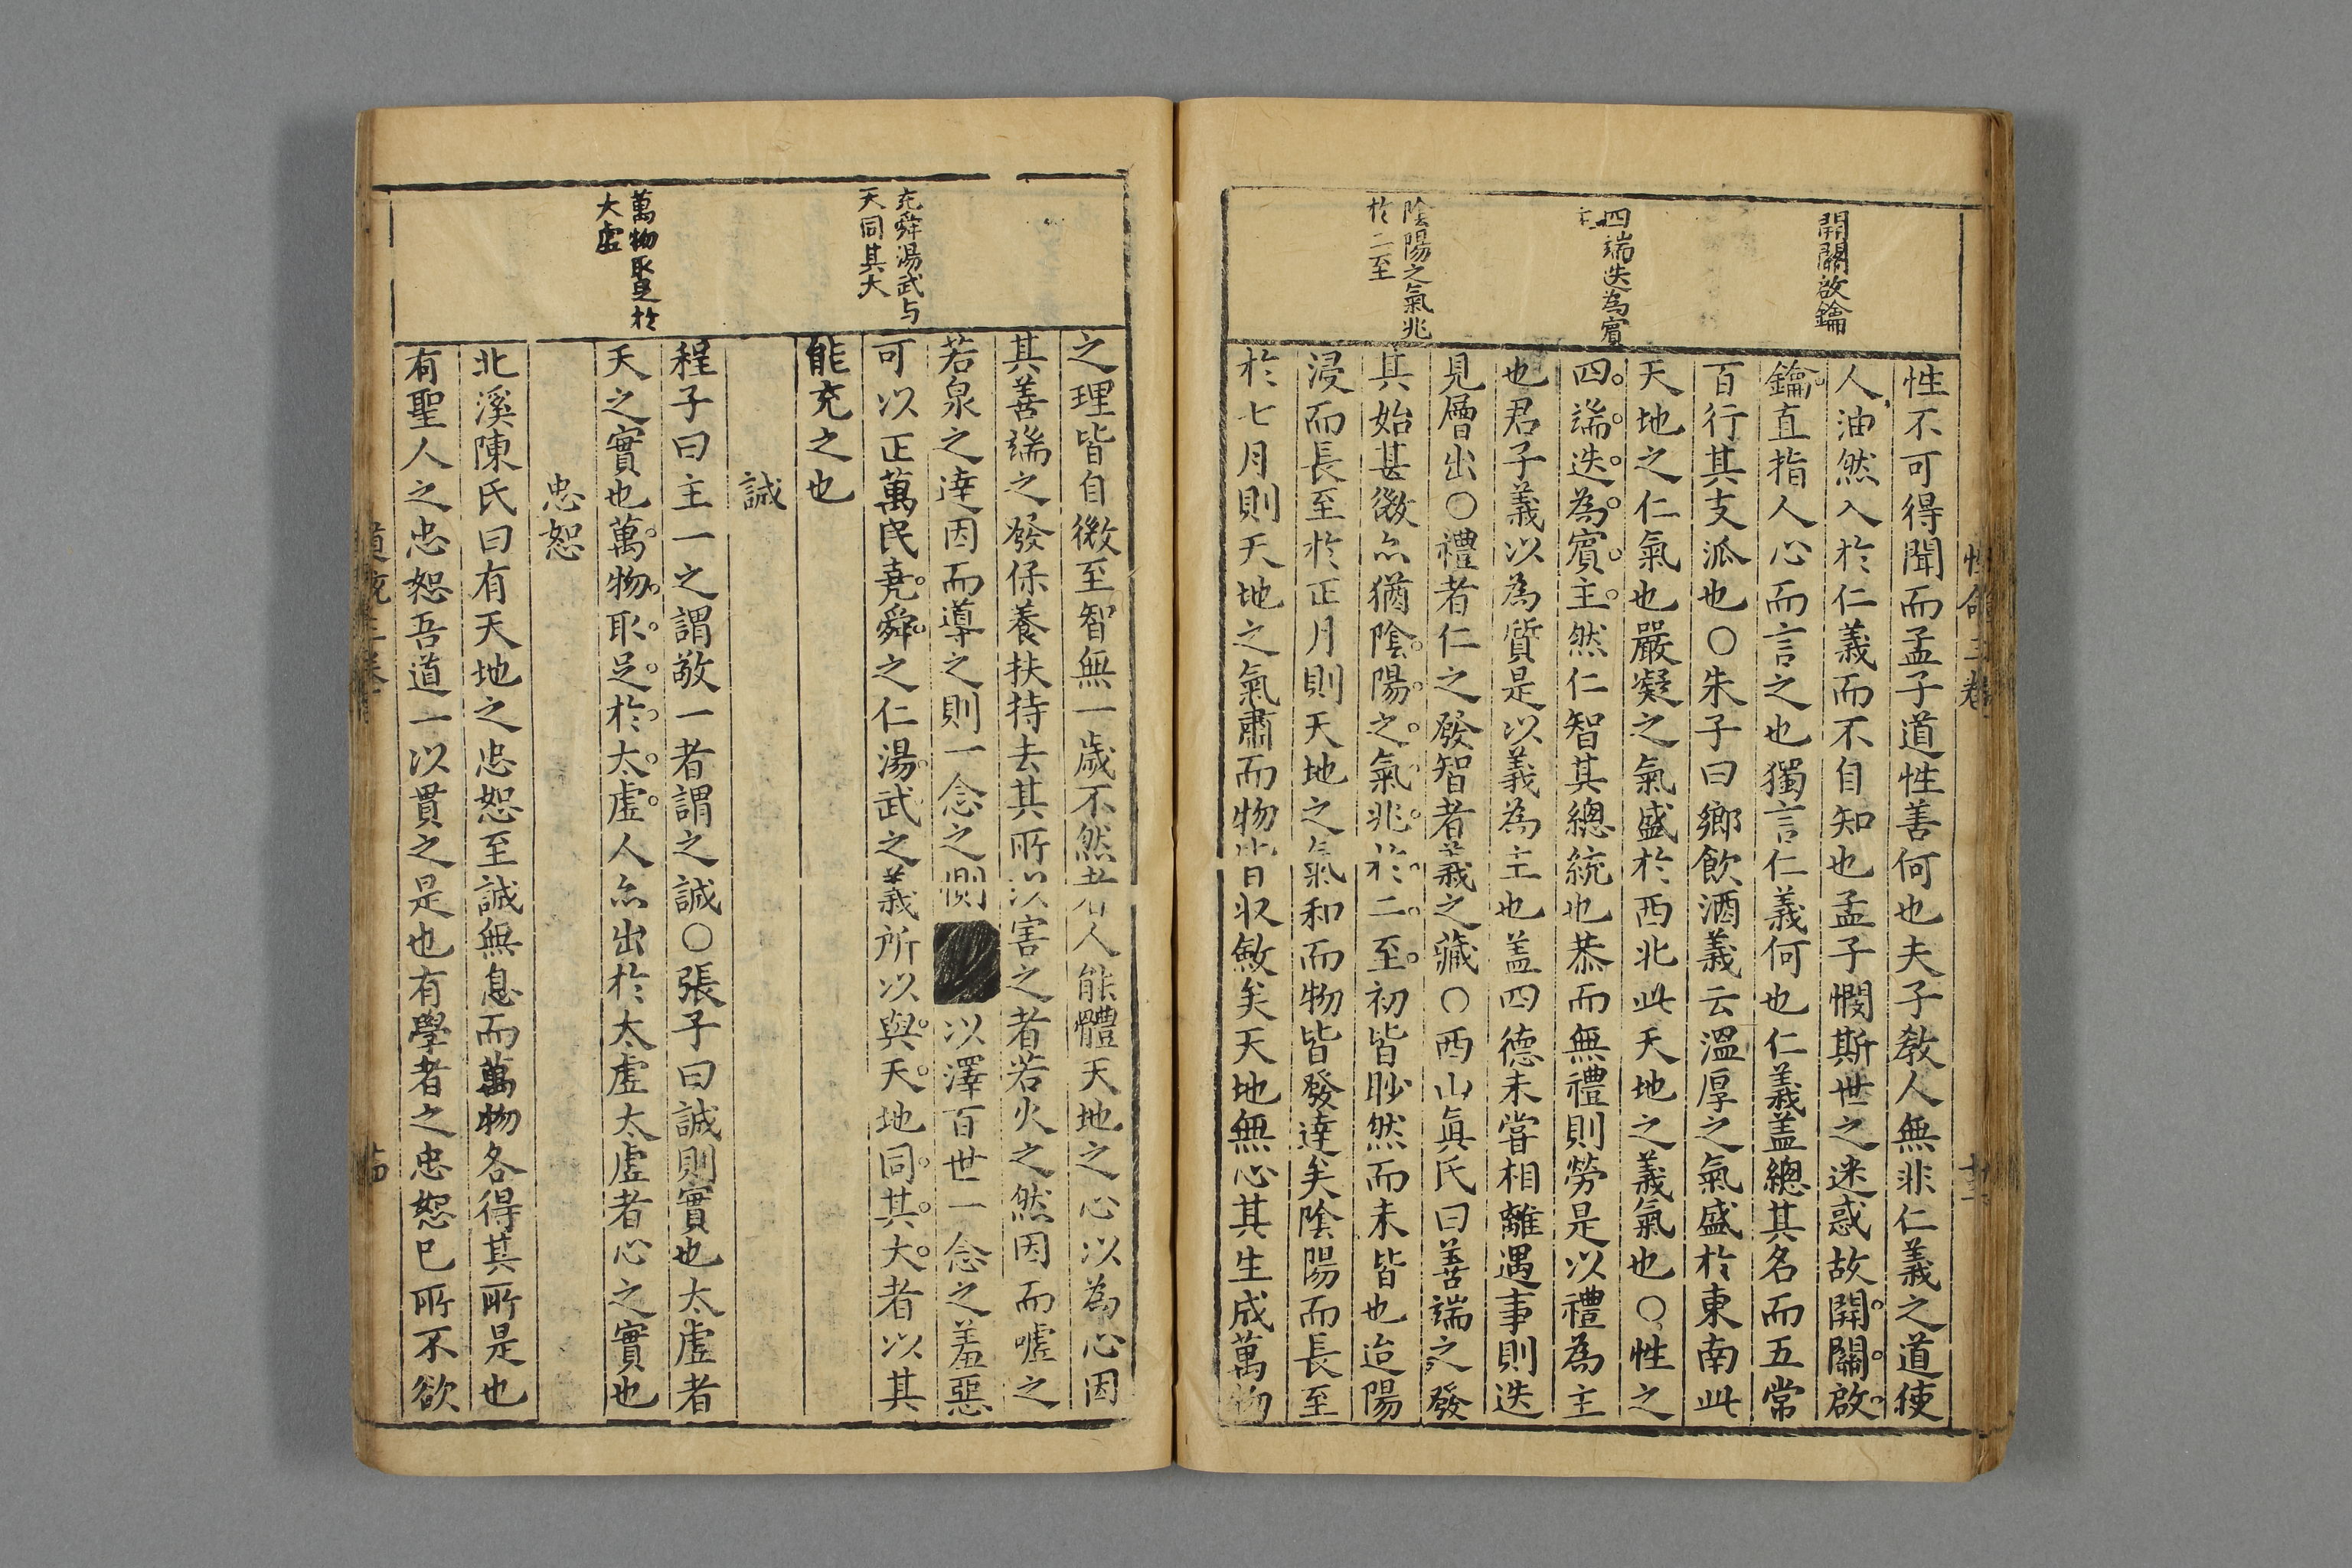 開關啟鑰
四端迭為賓
主
陰陽之氣兆
於二至
性不可得聞而孟子道性善何也夫子教人無非仁義之道使
人油然入於仁義而不自知也孟子憫斯世之迷惑故開關啟
鑰直指人心而言之也獨言仁義何也仁義蓋總其名而五常
百行其支派也○朱子曰鄉飲酒義云溫厚之氣盛於東南此
天地之仁氣也嚴凝之氣盛於西北此天地之義氣也○性之
四端迭為賓主然仁智其總統也恭而無禮則勞是以禮為主
也君子義以為質是以義為主也盖四德未嘗相離遇事則迭
見層出○禮者仁之發智者義之藏○西山真氏曰善端之發
其始甚微亦猶陰陽之氣兆於二至初皆眇然而未皆也迨陽
浸而長至於正月則天地之氣和而物皆發達矣陰陽而長至
於七月則天地之氣肅而物皆收斂矣天地無心其生成萬物
充舜湯武与
天同其大
萬物取足於
大虛
之理皆自微至智無一歲不然人能體天地之心以為心因
其善端之發保養扶持去其所以害之者若火之然因而噓之
若泉之達因而導之則一念之惻以澤百世一念之羞惡
可以正萬民堯舜之仁湯武之義所以與天地同其大者以其
能充之也
誠
程子曰主一之謂敬一者謂之誠○張子曰誠則實也太虛者
天之實也萬物取足於太虛人亦出於太虛太虛者心之實也
忠恕
北溪陳氏曰有天地之忠恕至誠無息而萬物各得其所是也
有聖人之忠恕吾道一以貫之是也有學者之忠恕已所不欲